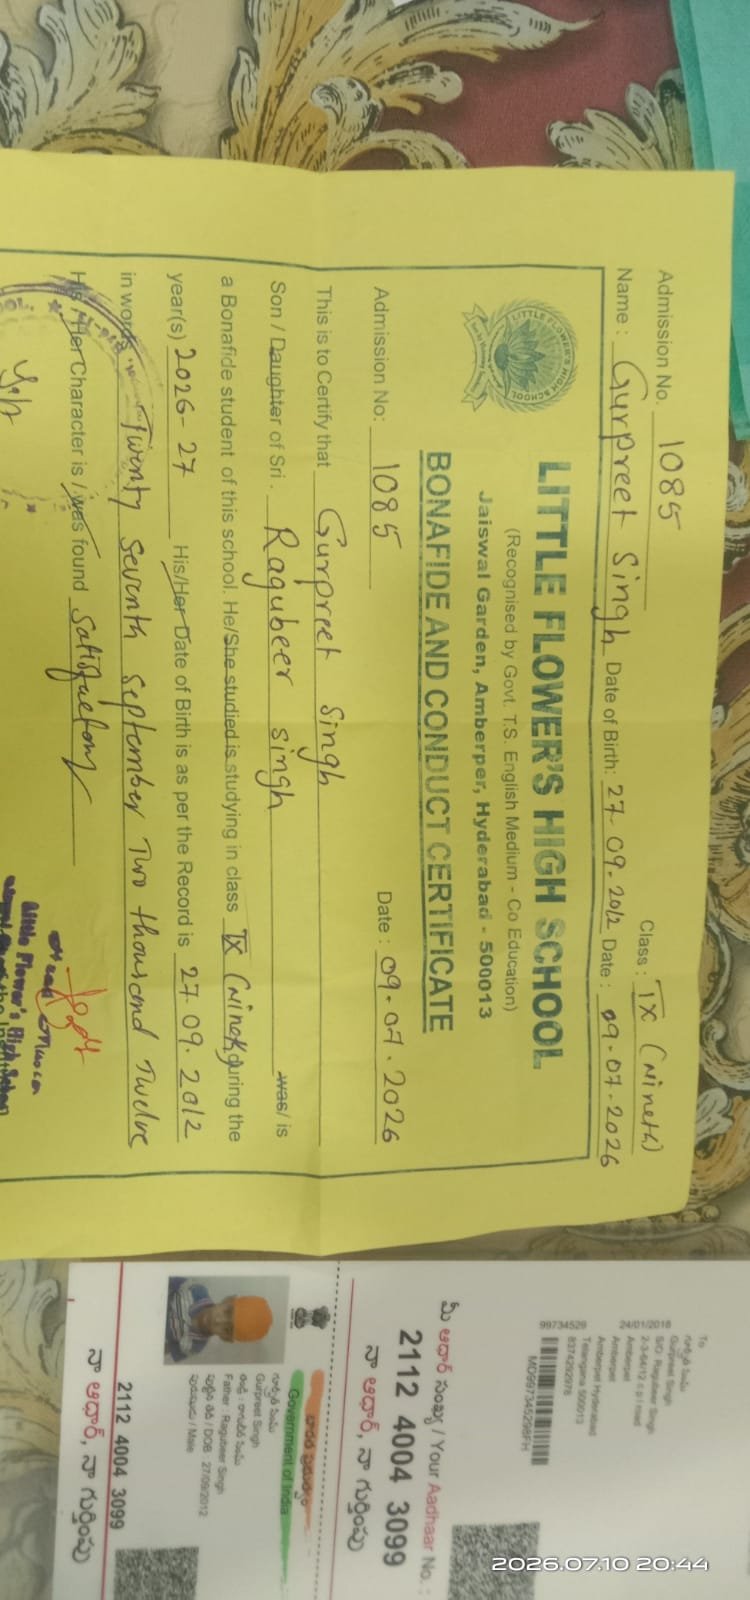 Admission No. 1085 Class : IX (Nineth)
Name : Gurpreet Singh Date of Birth: 27.09.2012 Date : 09.07.2026
LITTLE FLOWER'S HIGH SCHOOL
LITTLE FLOWER'S HIGH SCHOOL
(Recognised by Govt. T.S. English Medium - Co Education)
Jaiswal Garden, Amberper, Hyderabad - 500013
BONAFIDE AND CONDUCT CERTIFICATE
Admission No: 1085 Date : 09.07.2026
This is to Certify that Gurpreet Singh
Son / Daughter of Sri. Ragubeer singh was/ is
a Bonafide student of this school. He/She studied is studying in class IX (Nineth) during the
year(s) 2026-27 His/Her Date of Birth is as per the Record is 27.09.2012
in words Twenty Seventh September Two thousand Twelve
His / Her Character is / was found Satisfactory
Little Flower's High School
To
గుర్‌ప్రీత్ సింఘ్
Gurpreet Singh
S/O: Ragubeer Singh
2-3-64/12 c p l road
Amberpet
Amberpet
Amberpet Hyderabad
Telangana 500013
8374292978
24/01/2018
99734529
MD997345298FH
మీ ఆధార్ సంఖ్య / Your Aadhaar No. :
2112 4004 3099
నా ఆధార్, నా గుర్తింపు
భారత ప్రభుత్వం
Government of India
గుర్‌ప్రీత్ సింఘ్
Gurpreet Singh
తండ్రి : రాగుబీర్ సింఘ్
Father : Ragubeer Singh
పుట్టిన తేదీ / DOB : 27/09/2012
పురుషుడు / Male
2112 4004 3099
నా ఆధార్, నా గుర్తింపు
2026.07.10 20:44